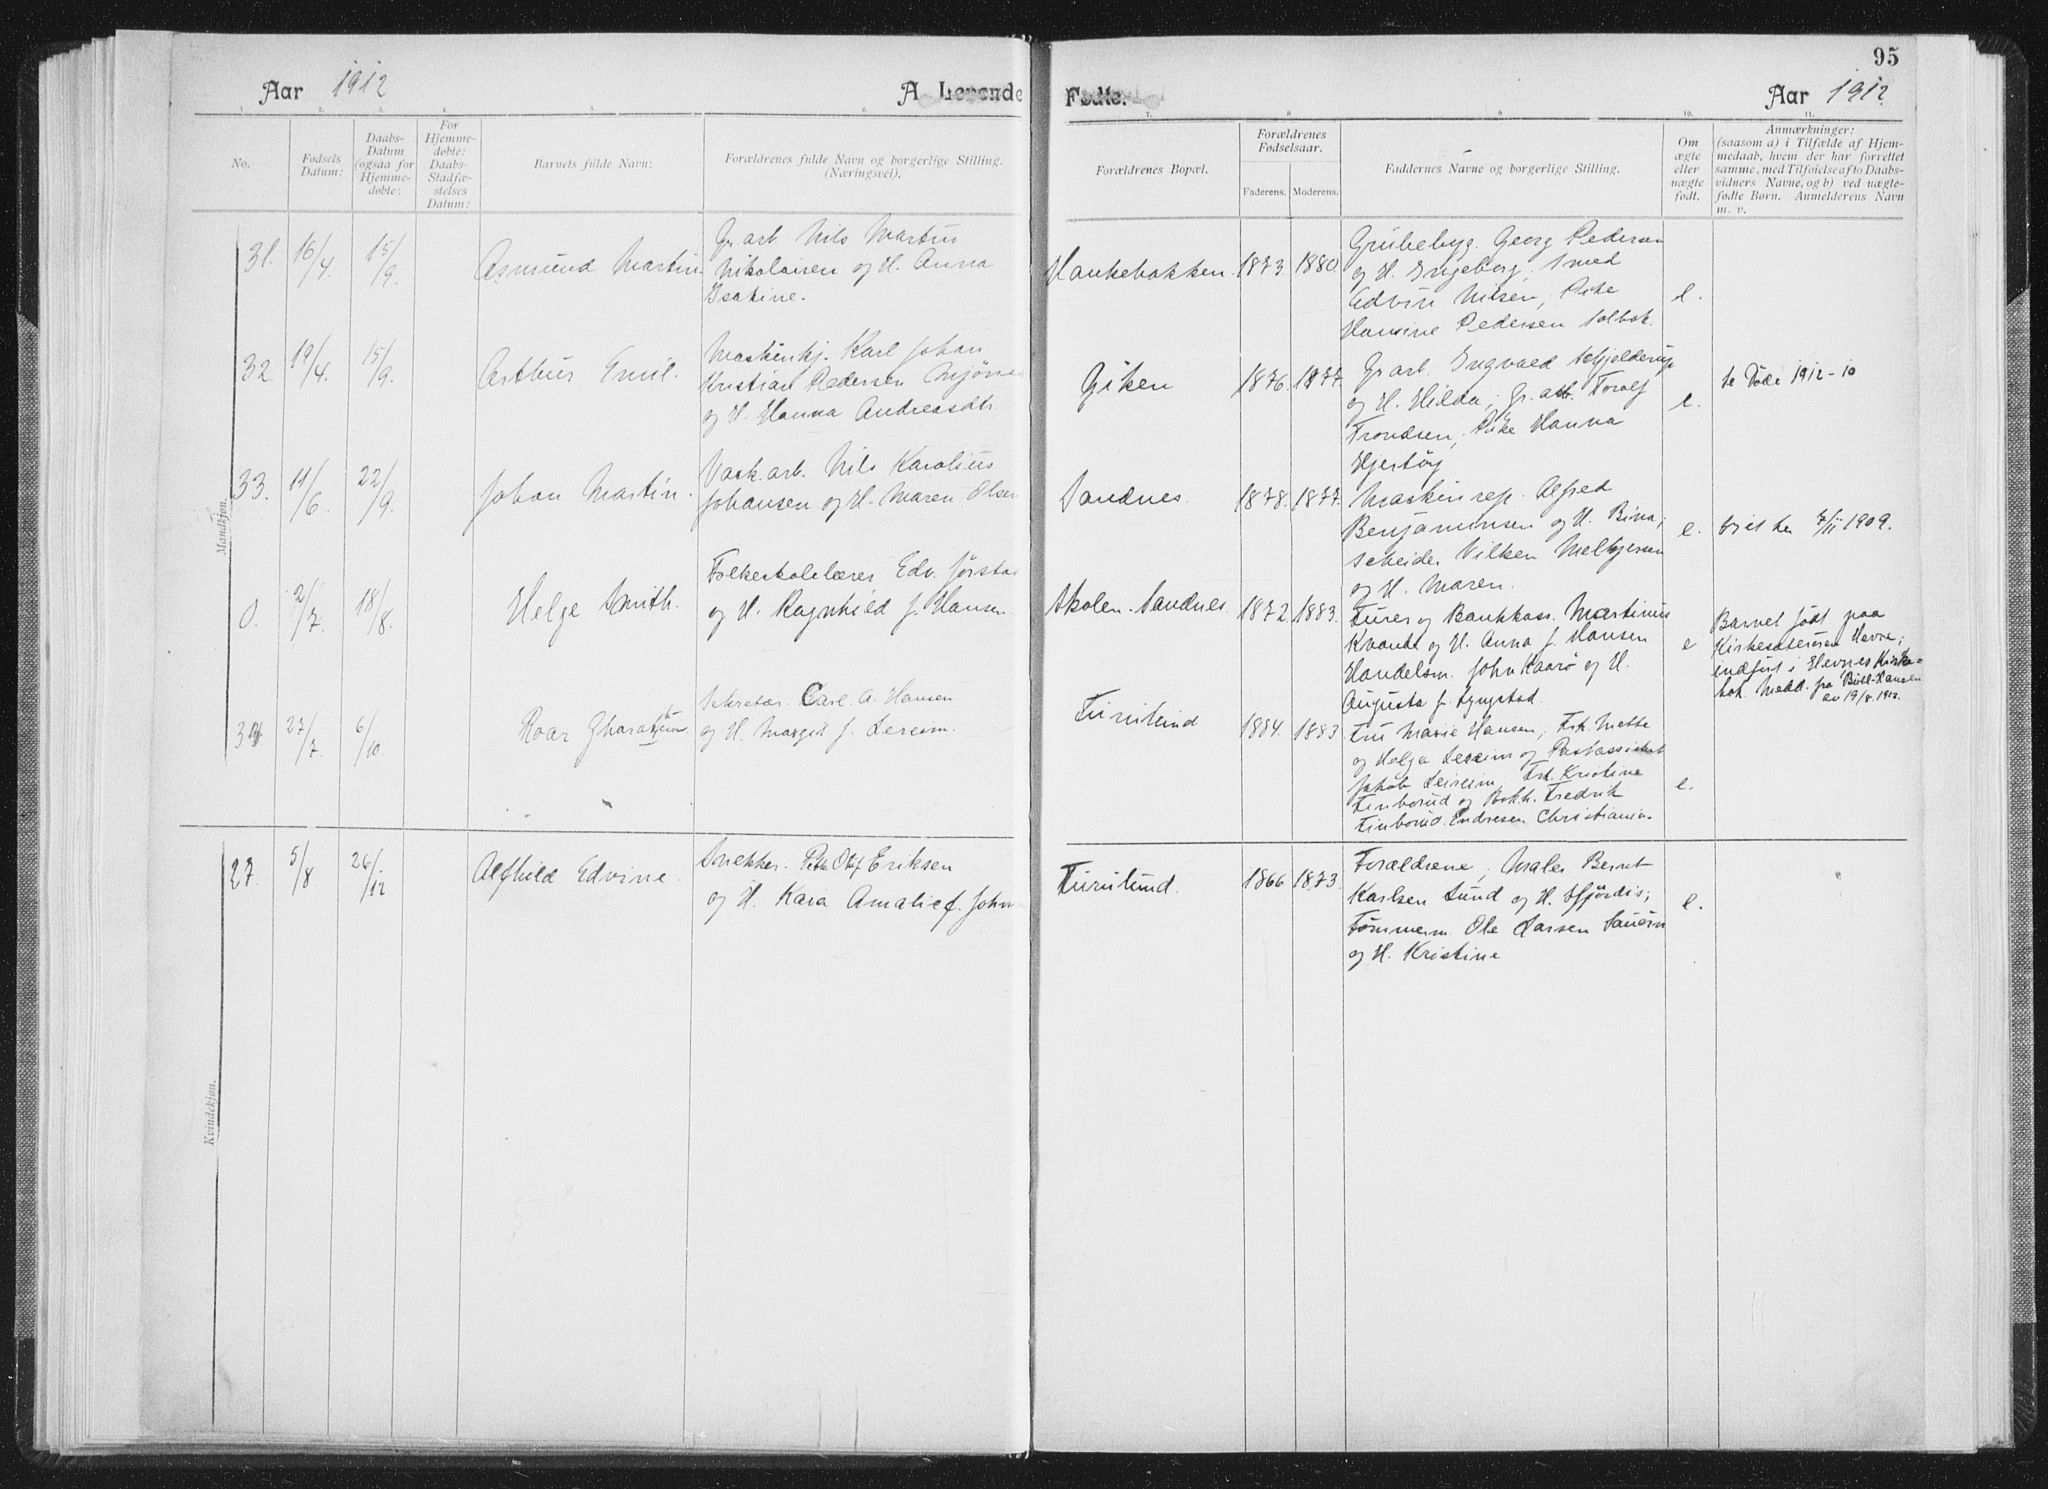 95
Aar 1912
A. Levende
Fødte.
Aar 1912
1. 2. 3. 4. 5. 6. 7. 8. 9. 10. 11.
No.
Fødsels
Datum:
Daabs-
Datum
(ogsaa for
Hjemme-
døbte:
For
Hjemme-
døbte:
Daabs-
Stadfæ-
stelses
Datum:
Barnets fulde Navn:
Forældrenes fulde Navn og borgerlige Stilling.
(Næringsvei).
Forældrenes Bopæl.
Forældrenes
Fødselsaar.
Faderens. Moderens.
Faddernes Navne og borgerlige Stilling.
Om
ægte
eller
uægte
født.
Anmærkninger:
(saasom a) i Tilfælde af Hjem-
medaab, hvem der har forrettet
samme, med Tilføielse af to Daabs-
vidners Navne, og b) ved uægte-
fødte Børn. Anmelderens Navn
m. v.
Mandkjøn.
31. 16/4. 15/9. Asmund Martin.
Gr.arb. Nils Martin
Nikolaisen og H. Anna
Isakine.
Haukebakken. 1873. 1880
Grubebyg. Georg Pedersen
og H. Ingeborg; Smed
Edvin Nilsen, Pike
Hansine Pedersen Solbak.
e.
32 19/4. 15/9. Arthur Emil.
Maskinkj. Karl Johan
Kristian Pedersen Mjøne
og H. Hanna Andreasdtr.
Giken 1876. 1877.
Gr.arb. Ingvald Schjelderup
og H. Hilda; Gr.arb. Toralf
Trondsen; Pike Hanna
Hjertøy
e.
se Døde 1912-10
33. 11/6. 22/9. Johan Martin.
Vask.arb. Nils Karolius
Johansen og H. Maren Olsen
Sandnes. 1878. 1877.
Maskinrep. Alfred
Benjaminsen og H. Bina;
Scheider Vilken
og H. Maren.
e. viet den 7/11 1909.
0. 2/7. 18/8. Helge Smith.
Folkeskolelærer Edv. Jørstad
og H. Ragnhild f. Hansen
Skolen. Sandnes. 1872. 1883.
Furer og Bankkass. Martinus
Kvande og H. Anna f. Hansen
Handelsm. John Kaarø og H.
Augusta f. Lyngstad.
e
Barnet født paa
Kirkesæterøren Hevne;
indført i Hevnes Kirke-
bok. Medd. fra Bull-Hansen
av 19/8. 1912.
34 27/7. 6/10 Roar
Sekretær. Carl. A. Hansen
og H. Margit f. Lereim.
Furulund 1884. 1883
Fru Marie Hansen, Frk. Mette
og Helga Lereim og
Jakob Leireim, Frk. Kristine
Finborud og Bokh. Fredrik
Finborud. Endresen Christiania.
e.
Kvindekjøn.
27. 5/8 26/12 Alfhild Edvine.
Snekker. Peter Olaf Eriksen
og H. Kaia Amalie f. John
Furulund. 1866 1873.
Forældrene; Maler Bernt
Karlsen Lund og H. Hjørdis;
Tømmerm. Ole Larsen
og H. Kristine
e.